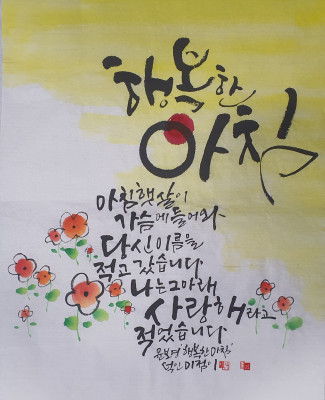 행복한
아침
아침햇살이
가슴에 들어와
당신 이름을
적고 갔습니다
나는 그 아래
사랑해라고
적었습니다
윤보영 '행복한 아침'